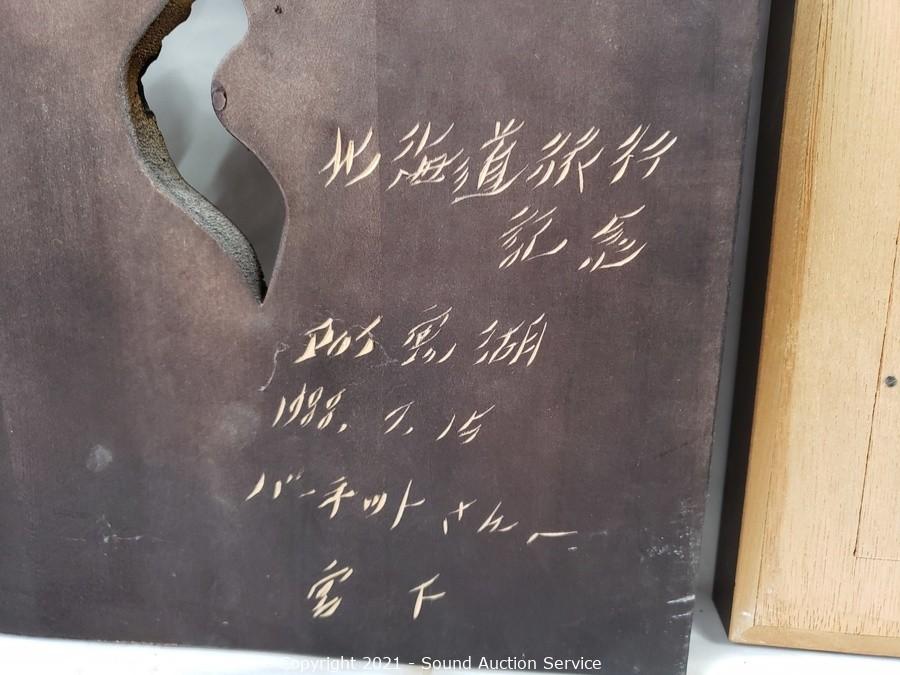 北海道旅行
記念
阿寒湖
1988. 7. 15
バーネットさんへ
宮下
Copyright 2021 - Sound Auction Service